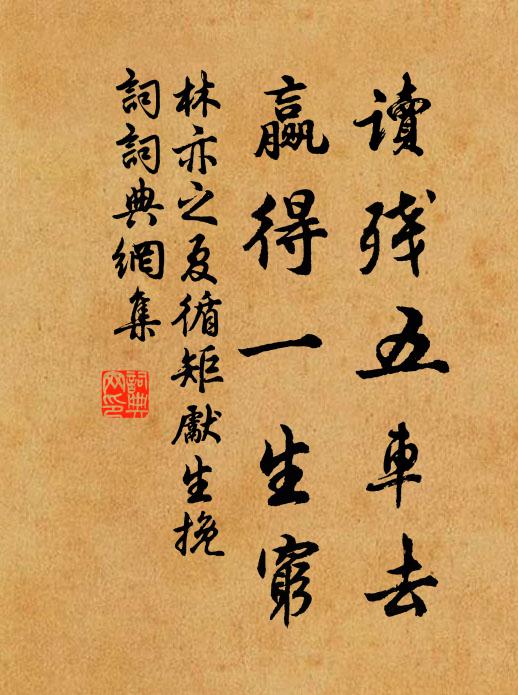 讀殘五車去
贏得一生窮
林亦之夏循矩獻生挽
詞詞典網集
詞典網印